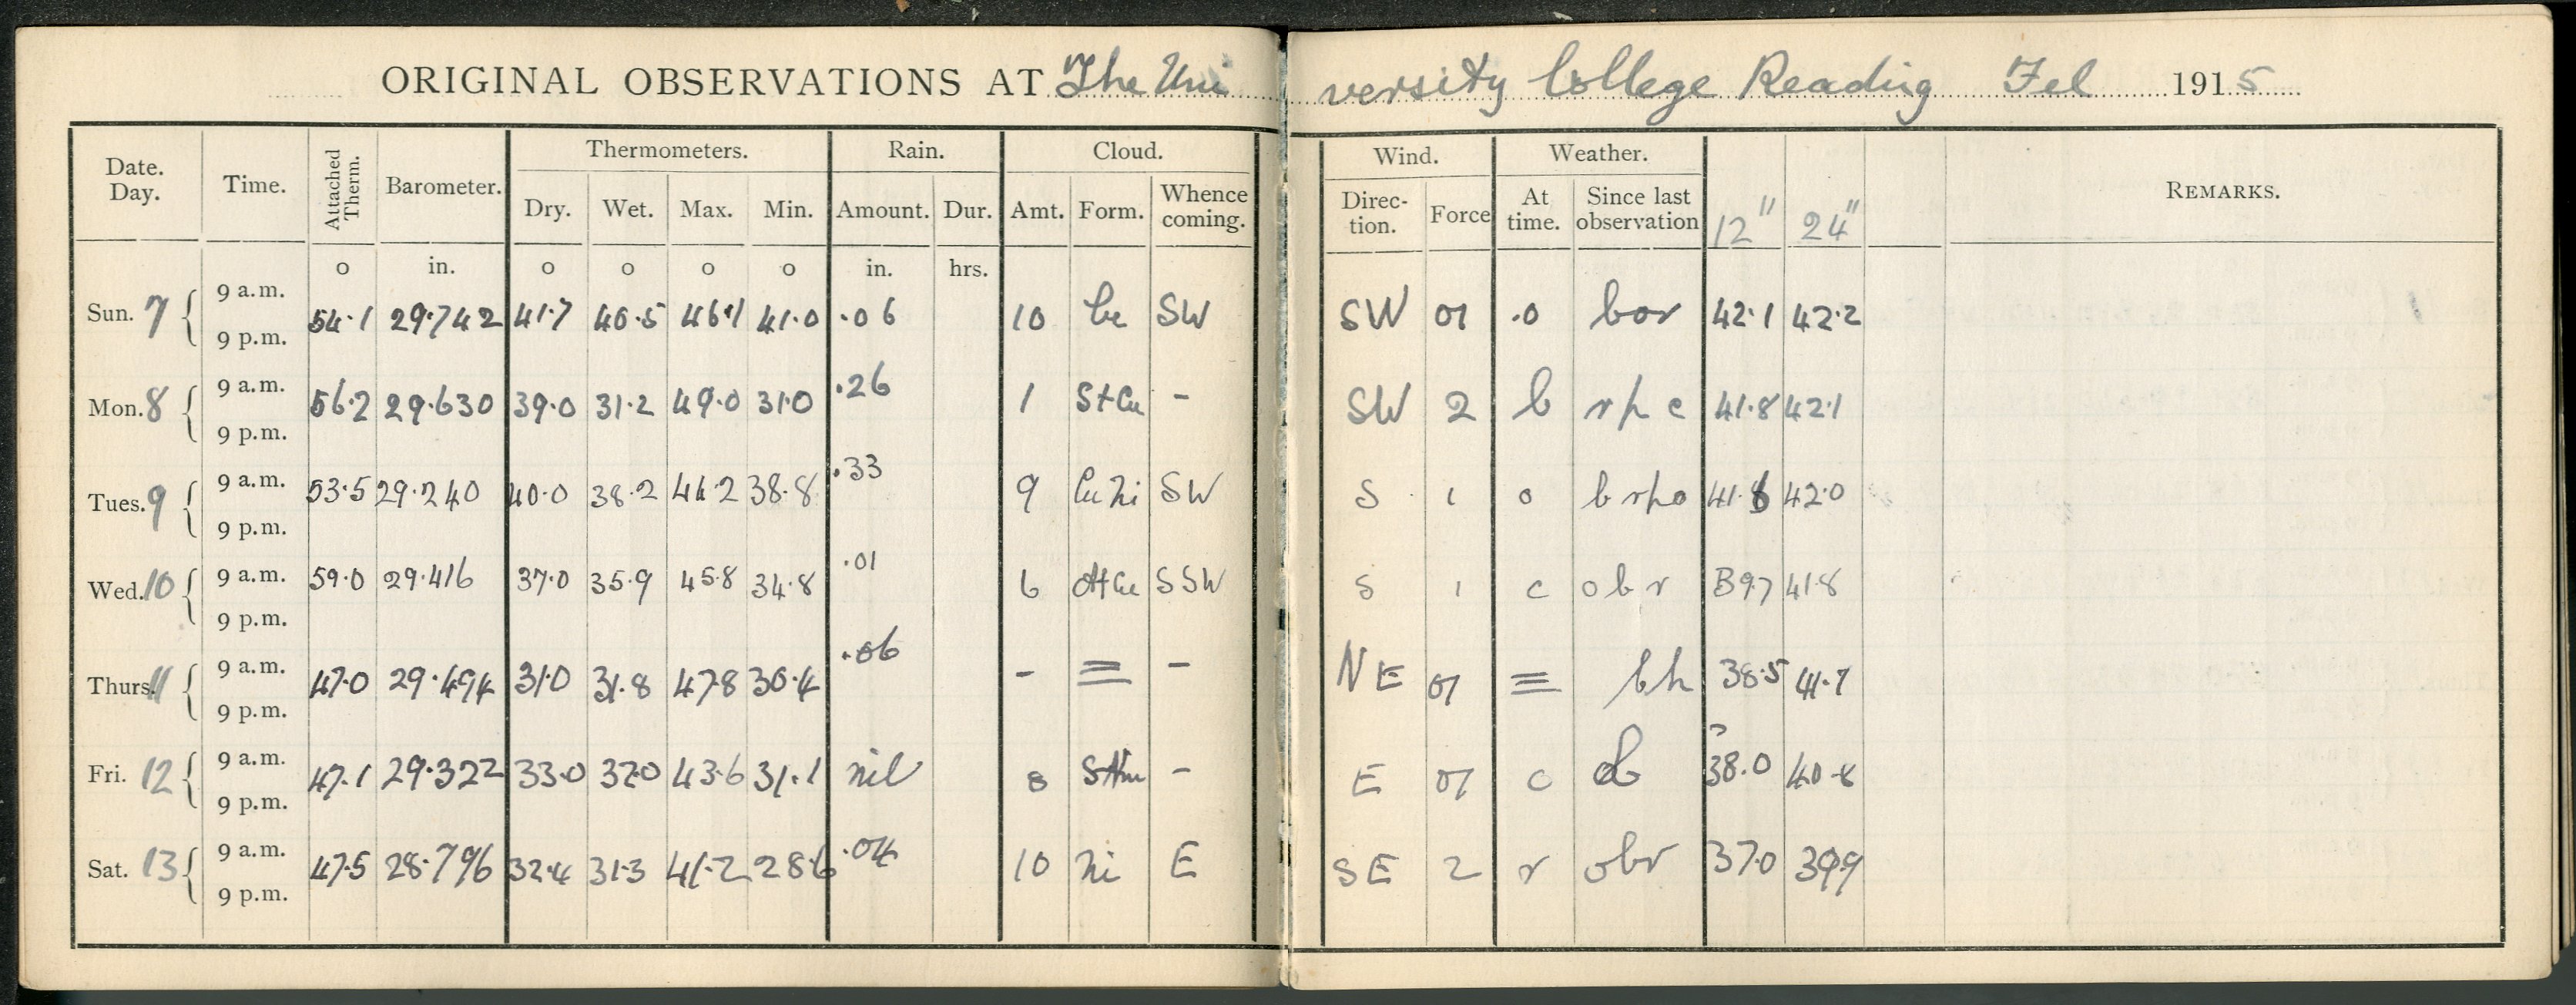 ORIGINAL OBSERVATIONS AT The University College Reading Feb 1915
Date. Day. Time. Attached Therm. Barometer. Thermometers. Rain. Cloud. Wind. Weather. REMARKS.
Dry. Wet. Max. Min. Amount. Dur. Amt. Form. Whence coming. Direc- tion. Force At time. Since last observation 12" 24"
o in. o o o o in. hrs.
Sun. 7 { 9 a.m. 9 p.m. 54.1 29.742 41.7 40.5 46.1 41.0 .06 10 Cu SW SW 01 .o bor 42.1 42.2
Mon. 8 { 9 a.m. 9 p.m. 56.2 29.630 39.0 31.2 49.0 31.0 .26 1 StCu - SW 2 b rpc 41.8 42.1
Tues. 9 { 9 a.m. 9 p.m. 53.5 29.240 40.0 38.2 44.2 38.8 .33 9 CuNi SW S 1 o brpo 42.0
Wed. 10 { 9 a.m. 9 p.m. 59.0 29.416 37.0 35.9 45.8 34.8 .01 6 SSW S 1 c obr 39.7 41.8
Thurs. 11 { 9 a.m. 9 p.m. 47.0 29.494 31.0 31.8 47.8 30.4 .06 - ≡ - NE 01 ≡ bh 38.5 41.7
Fri. 12 { 9 a.m. 9 p.m. 47.1 29.322 33.0 32.0 43.6 31.1 nil 8 - E 01 c ?38.0 40.8
Sat. 13 { 9 a.m. 9 p.m. 47.5 28.796 32.4 31.3 41.2 28.6 .04 10 Ni E SE 2 r obr 37.0 39.9